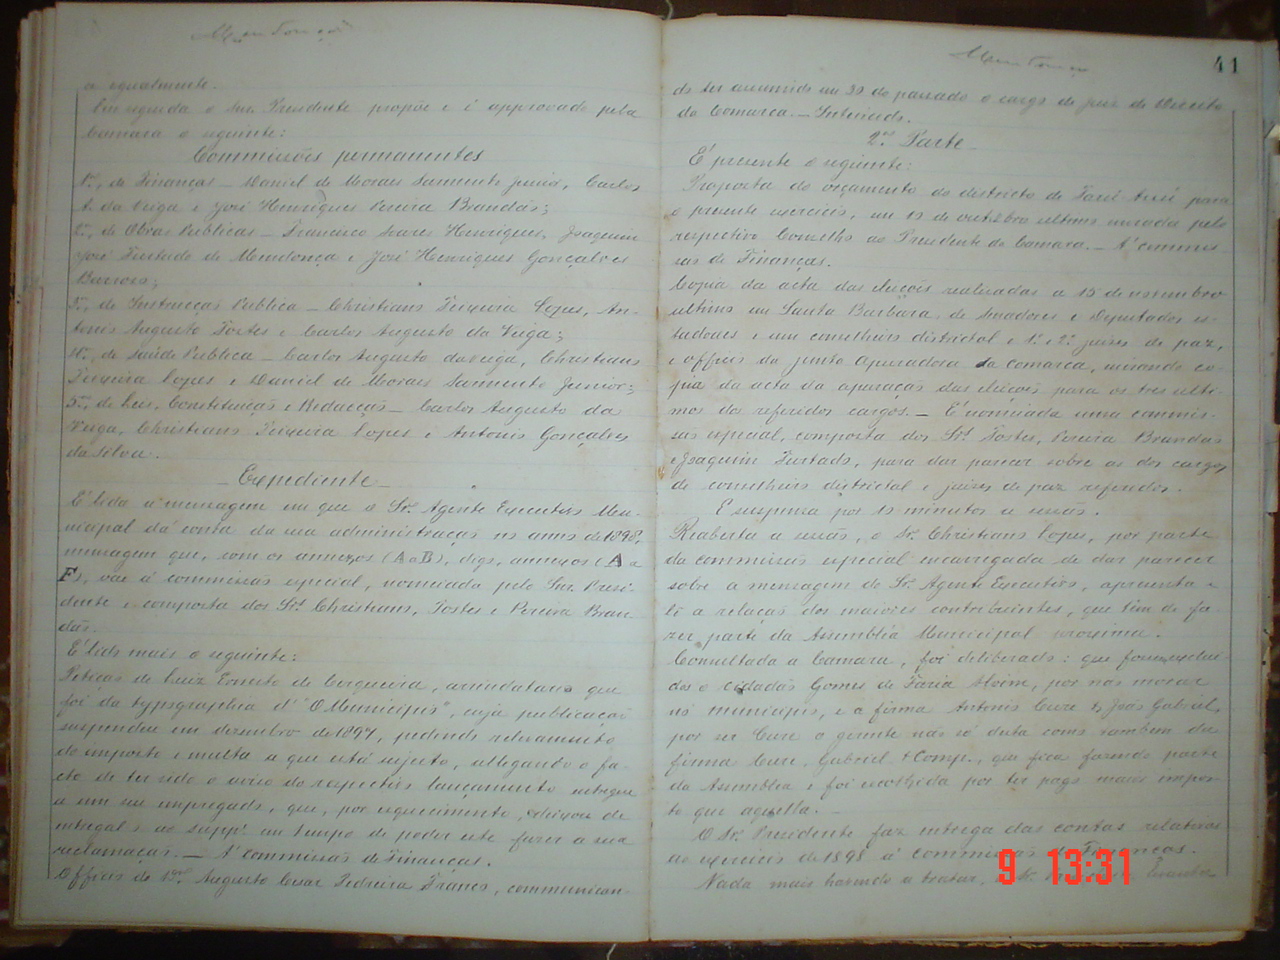 Mendonça
a igualmente.
Em seguida o Snr. Presidente propõe e é approvado pela
Camara o seguinte:
Commissões permanentes
1ª, de Finanças — Daniel de Moraes Sarmento Junior, Carlos
A. da Veiga e José Henriques Pereira Brandão;
2ª, de Obras Publicas — Francisco Soares Henriques, Joaquim
José Furtado de Mendonça e José Henriques Gonçalves
Barroso;
3ª, de Instrucção Publica — Christiano Teixeira Lopes, An-
tonio Augusto Tostes e Carlos Augusto da Veiga;
4ª, de Saúde Publica — Carlos Augusto da Veiga, Christiano
Teixeira Lopes e Daniel de Moraes Sarmento Junior;
5ª, de Leis, Constituição e Redacção — Carlos Augusto da
Veiga, Christiano Teixeira Lopes e Antonio Gonçalves
da Silva.
Expediente
É lida a mensagem em que o Sr. Agente Executivo Mu-
nicipal dá conta da sua administração no anno de 1898,
mensagem que, com os annexos (A a B), digo, annexos (A a
F), vae á commissão especial, nomeada pelo Snr. Presi-
dente e composta dos Srs. Christiano, Tostes e Pereira Bran-
dão.
É lido mais o seguinte:
Petição de Luiz Ernesto de Cerqueira, arrendatario que
foi da typographia d' "O Municipio", cuja publicação
suspendeu em dezembro de 1897, pedindo relevamento
do imposto e multa a que está sujeito, allegando o fa-
cto de ter sido o aviso do respectivo lançamento entregue
a um seu empregado, que, por esquecimento, deixou de
entregal-o ao supp. em tempo de poder este fazer a sua
reclamação. — Á commissão de Finanças.
Officio do Augusto Cesar Pedreira Franco, communican-
Mendonça
41
do ter assumido em 30 do passado o cargo de juiz de Direito
da Comarca. — Inteirada.
2ª Parte
É presente o seguinte:
Proposta do orçamento do districto de para
o presente exercicio, em 19 de outubro ultimo enviada pelo
respectivo Conselho ao Presidente da Camara. — Á commis-
são de Finanças.
Copia da acta das eleições realizadas a 15 de novembro
ultimo em Santa Barbara, de senadores e deputados es-
tadoaes e um conselheiro districtal e 1º e 2º juizes de paz,
e officio da junta apuradora da Comarca, enviando co-
pia da acta da apuração das eleições para os tres ulti-
mos dos referidos cargos. — É nomeada uma commis-
são especial, composta dos Srs. Tostes, Pereira Brandão
e Joaquim Furtado, para dar parecer sobre as dos cargos
de conselheiro districtal e juizes de paz referidos.
É suspensa por 15 minutos a sessão.
Reaberta a sessão, o Sr. Christiano Lopes, por parte
da commissão especial encarregada de dar parecer
sobre a mensagem do Sr. Agente Executivo, apresenta e
lê a relação dos maiores contribuintes, que têm de fa-
zer parte da Assembléa Municipal proxima.
Consultada a Camara, foi deliberado: que fosse exclui-
do o cidadão Gomes de Faria Alvim, por não morar
no municipio, e a firma Antonio Cure & João Gabriel,
por ser Cure o gerente não só desta como tambem da
firma Cure, Gabriel & Comp., que fica fazendo parte
da Assembléa e foi escolhida por ter pago maior impos-
to que aquella.
O Sr. Presidente faz entrega das contas relativas
ao exercicio de 1898 á commissão de Finanças.
Nada mais havendo a tratar, o Sr.
9 13:31